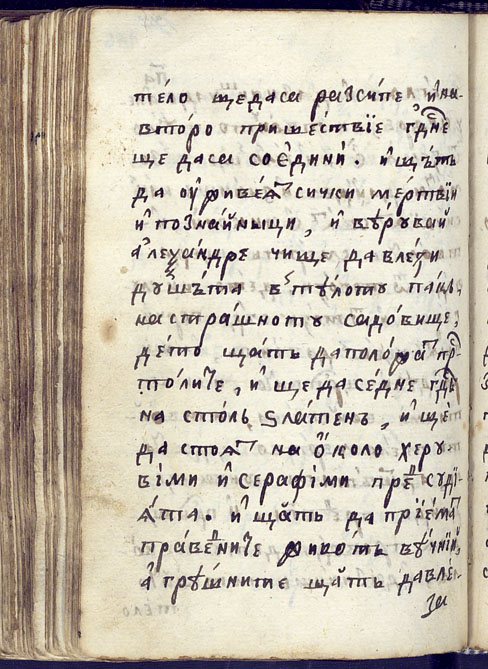 тѣло щедаса разсипе и на
второ пришествїе гдне
ще даса соедини. и щѫть
да ѹживеѧт сички мертвїи
и познайници, и вѣрувай
александре чище, да влези
душѫта в тѣлоту паки,
на страшноту садовище,
дето щать да положат пр
толиче, и ще да седне гдь
на столь ѕлатень, и ще
да стоѧт на около херу
віми и серафіми пред судї
ѧта. и щать да прїемат
праведниче животь вѣчнїи,
а грѣшните щать да влѣ
зи